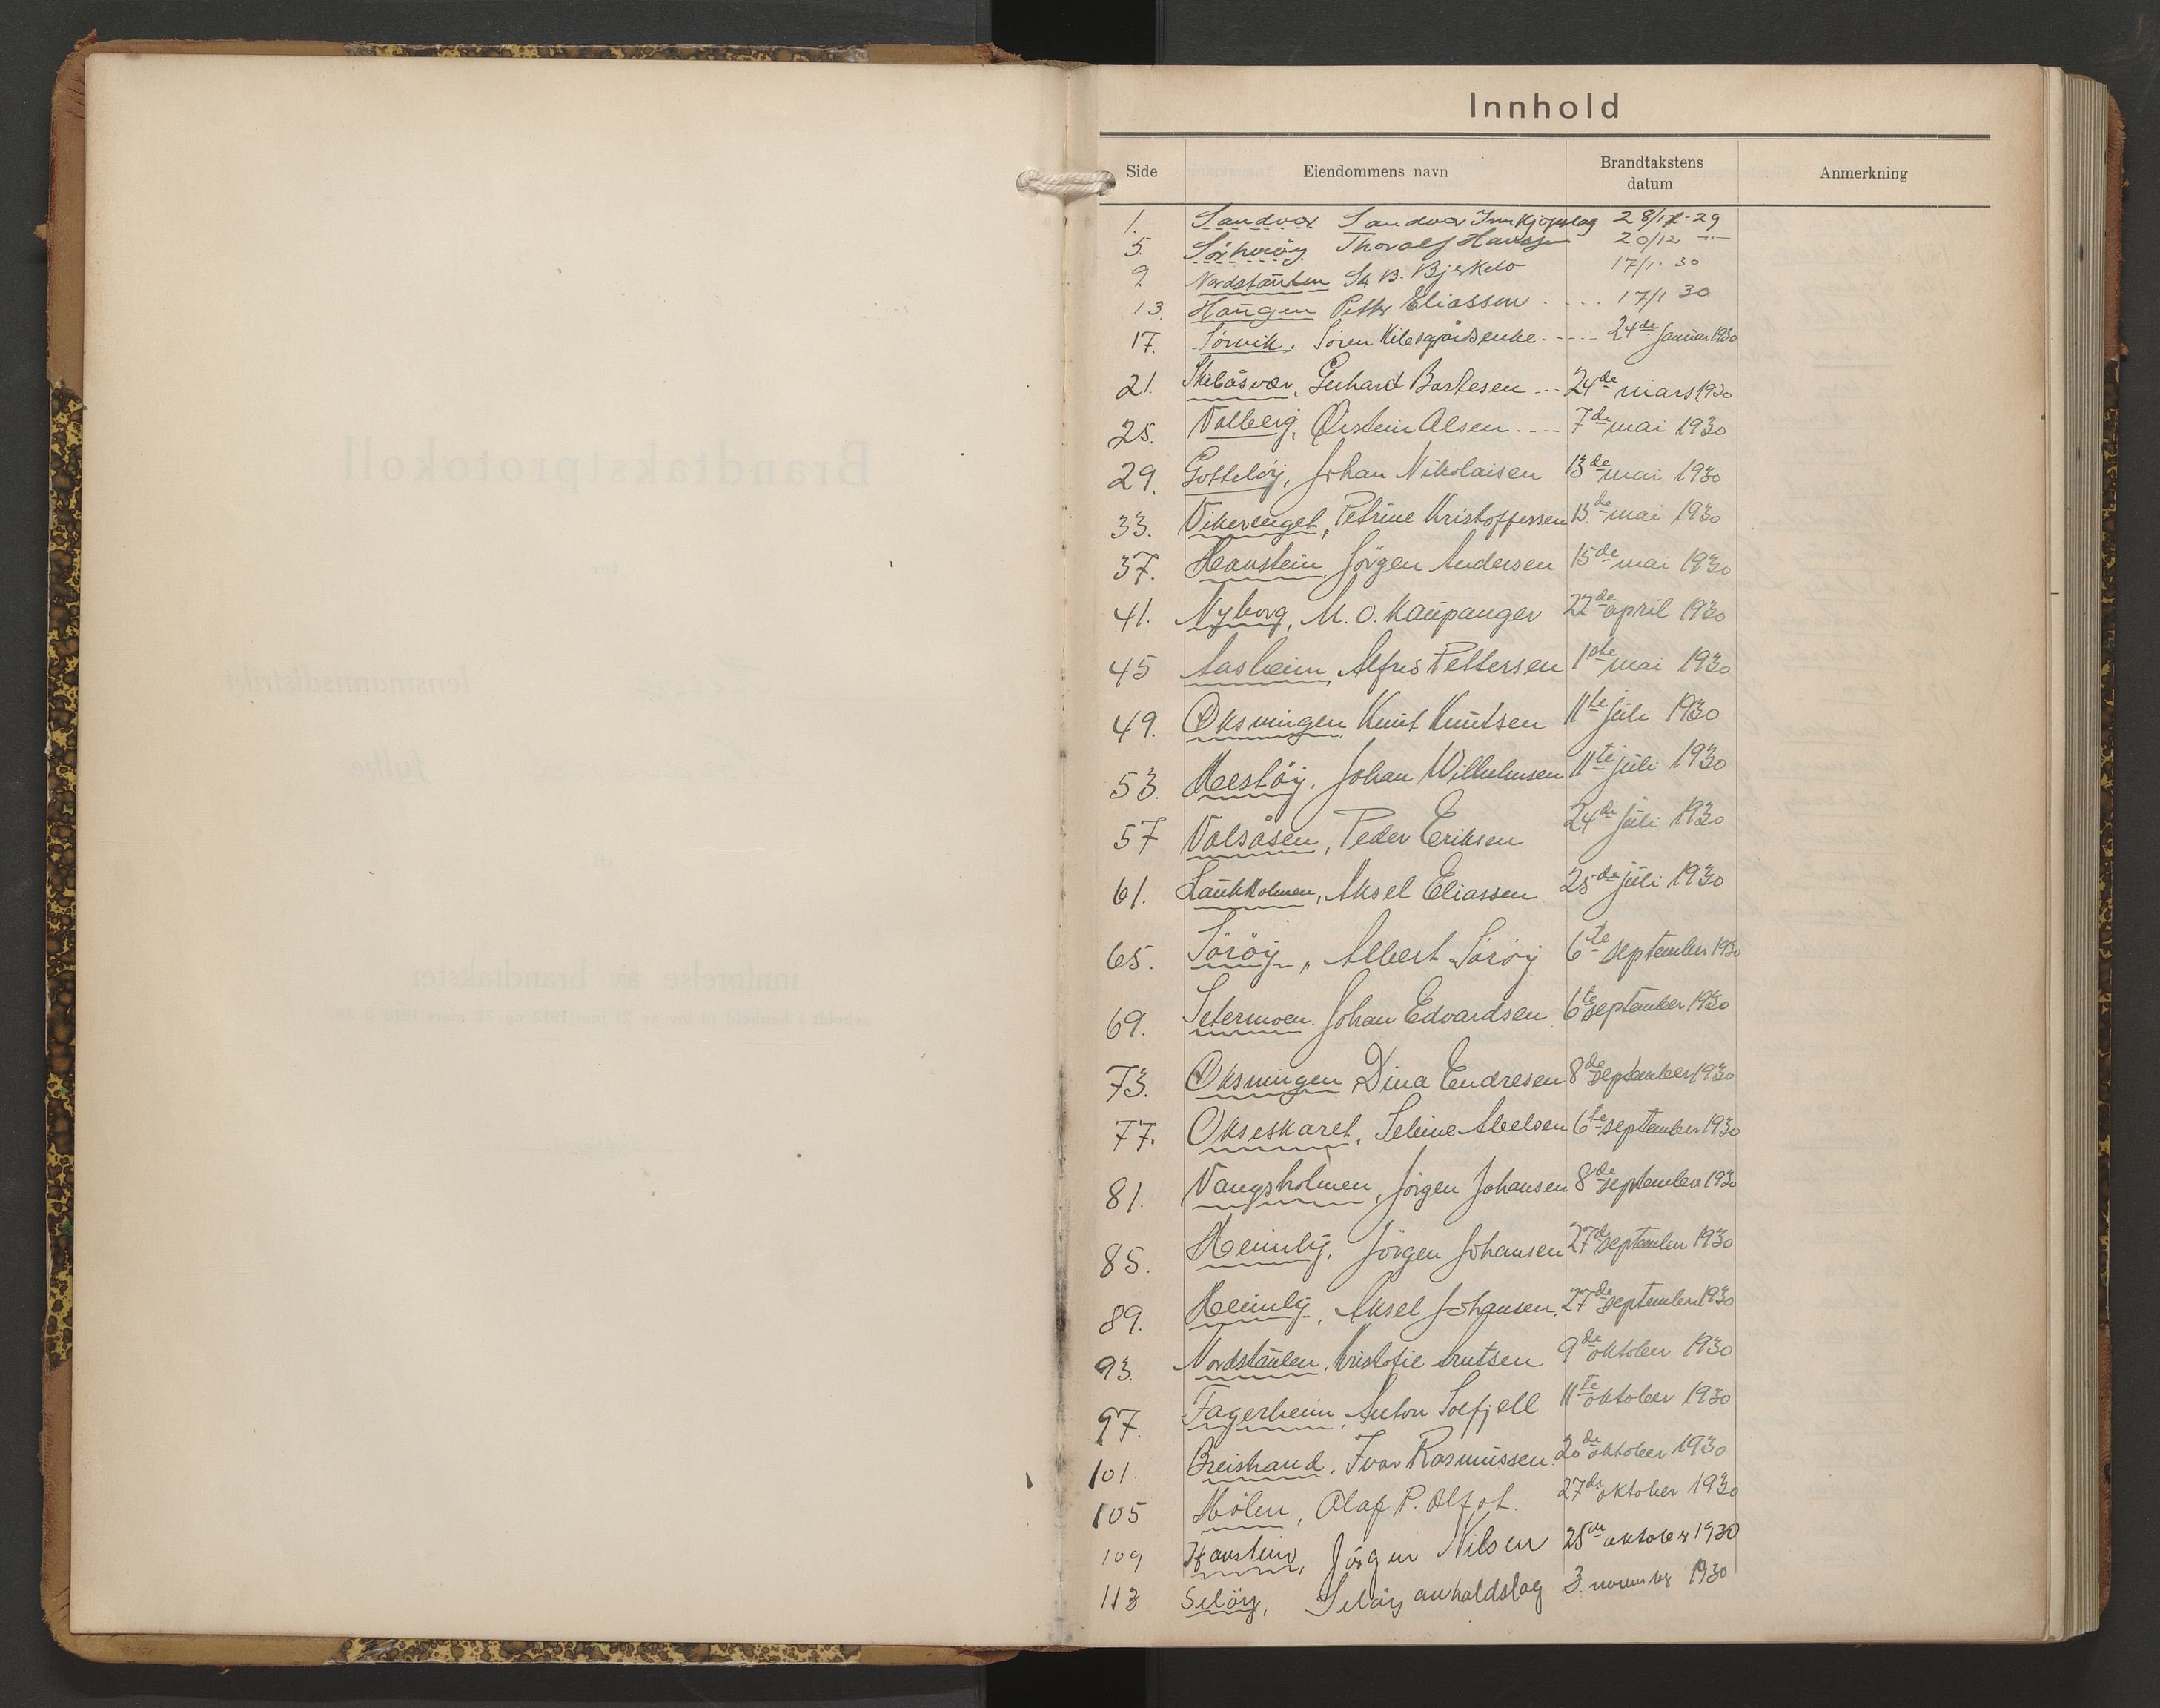 Innhold
Side Eiendommens navn Brandtakstens datum Anmerkning
1. Sandvær Sandvær Innkjøpslag 28/12-29
5. Thoralf Hanssen 20/12 -"-
9. Nordstaulen B. Bjerkebo 17/1. 30
13. Haugen Petter Eliassen .... 17/1 30
17. Sørvik, Søren ..... 24de Januar 1930
21. Skibåsvær, Gerhard Bartesen ... 24de mars 1930
25. Valberg, Øistein Olsen .... 7de mai 1930
29. Johan Nikolaisen 13de mai 1930
33. Vikerenget, Petrine Kristoffersen 13de mai 1930
37. Haustein, Jörgen Andersen 15de mai 1930
41. Nyborg, M. O. Kaupanger 22de april 1930
45 Aasheim, Alfred Pettersen 1ste mai 1930
49. Øksningen Knut Knutsen 11te juli 1930
53. Hestöy. Johan Willhelmsen 11te juli 1930
57 Valsåsen, Peder Eriksen 24de juli 1930
61. Laukholmen, Aksel Eliassen 25de juli 1930
65. Söröy, Albert Söröy 6te september 1930
69. Setermoen. Johan Edvardsen 6te september 1930
73. Øksningen Dina Endresen 8de september 1930
77. Okseskaret, Seline Abelsen 6te september 1930
81. Vangsholmen, Jörgen Johansen 8de september 1930
85. Heimly, Jörgen Johansen 27de september 1930
89. Heimly, Aksel Johansen, 27de september 1930
93. Nordstaulen, Kristofie Knutsen 9de oktober 1930
97. Fagerheim, Anton Solfjell 11te oktober 1930
101. Breistrand, Ivar Rasmussen 20de oktober 1930
105 Mölen, Olaf P. 27de oktober 1930
109 Haustein, Jörgen Nilsen 25de oktober 1930
113 Selöy, Selöy avholdslag 3. november 1930